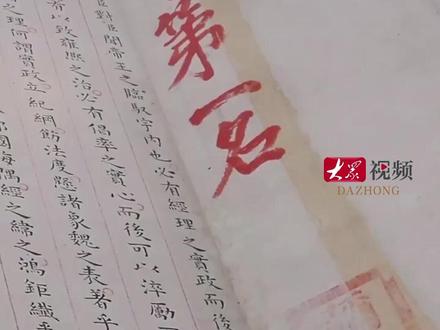 第一名
對臣聞帝王之臨馭宇內也必有經理之實政而後
有以致雍熙之治必有倡率之實心而後可以淬勵
之理何謂實政立紀綱飭法度懸諸象魏之表著乎
國海隅經之緯之鴻鉅纖
大眾视频
DAZHONG